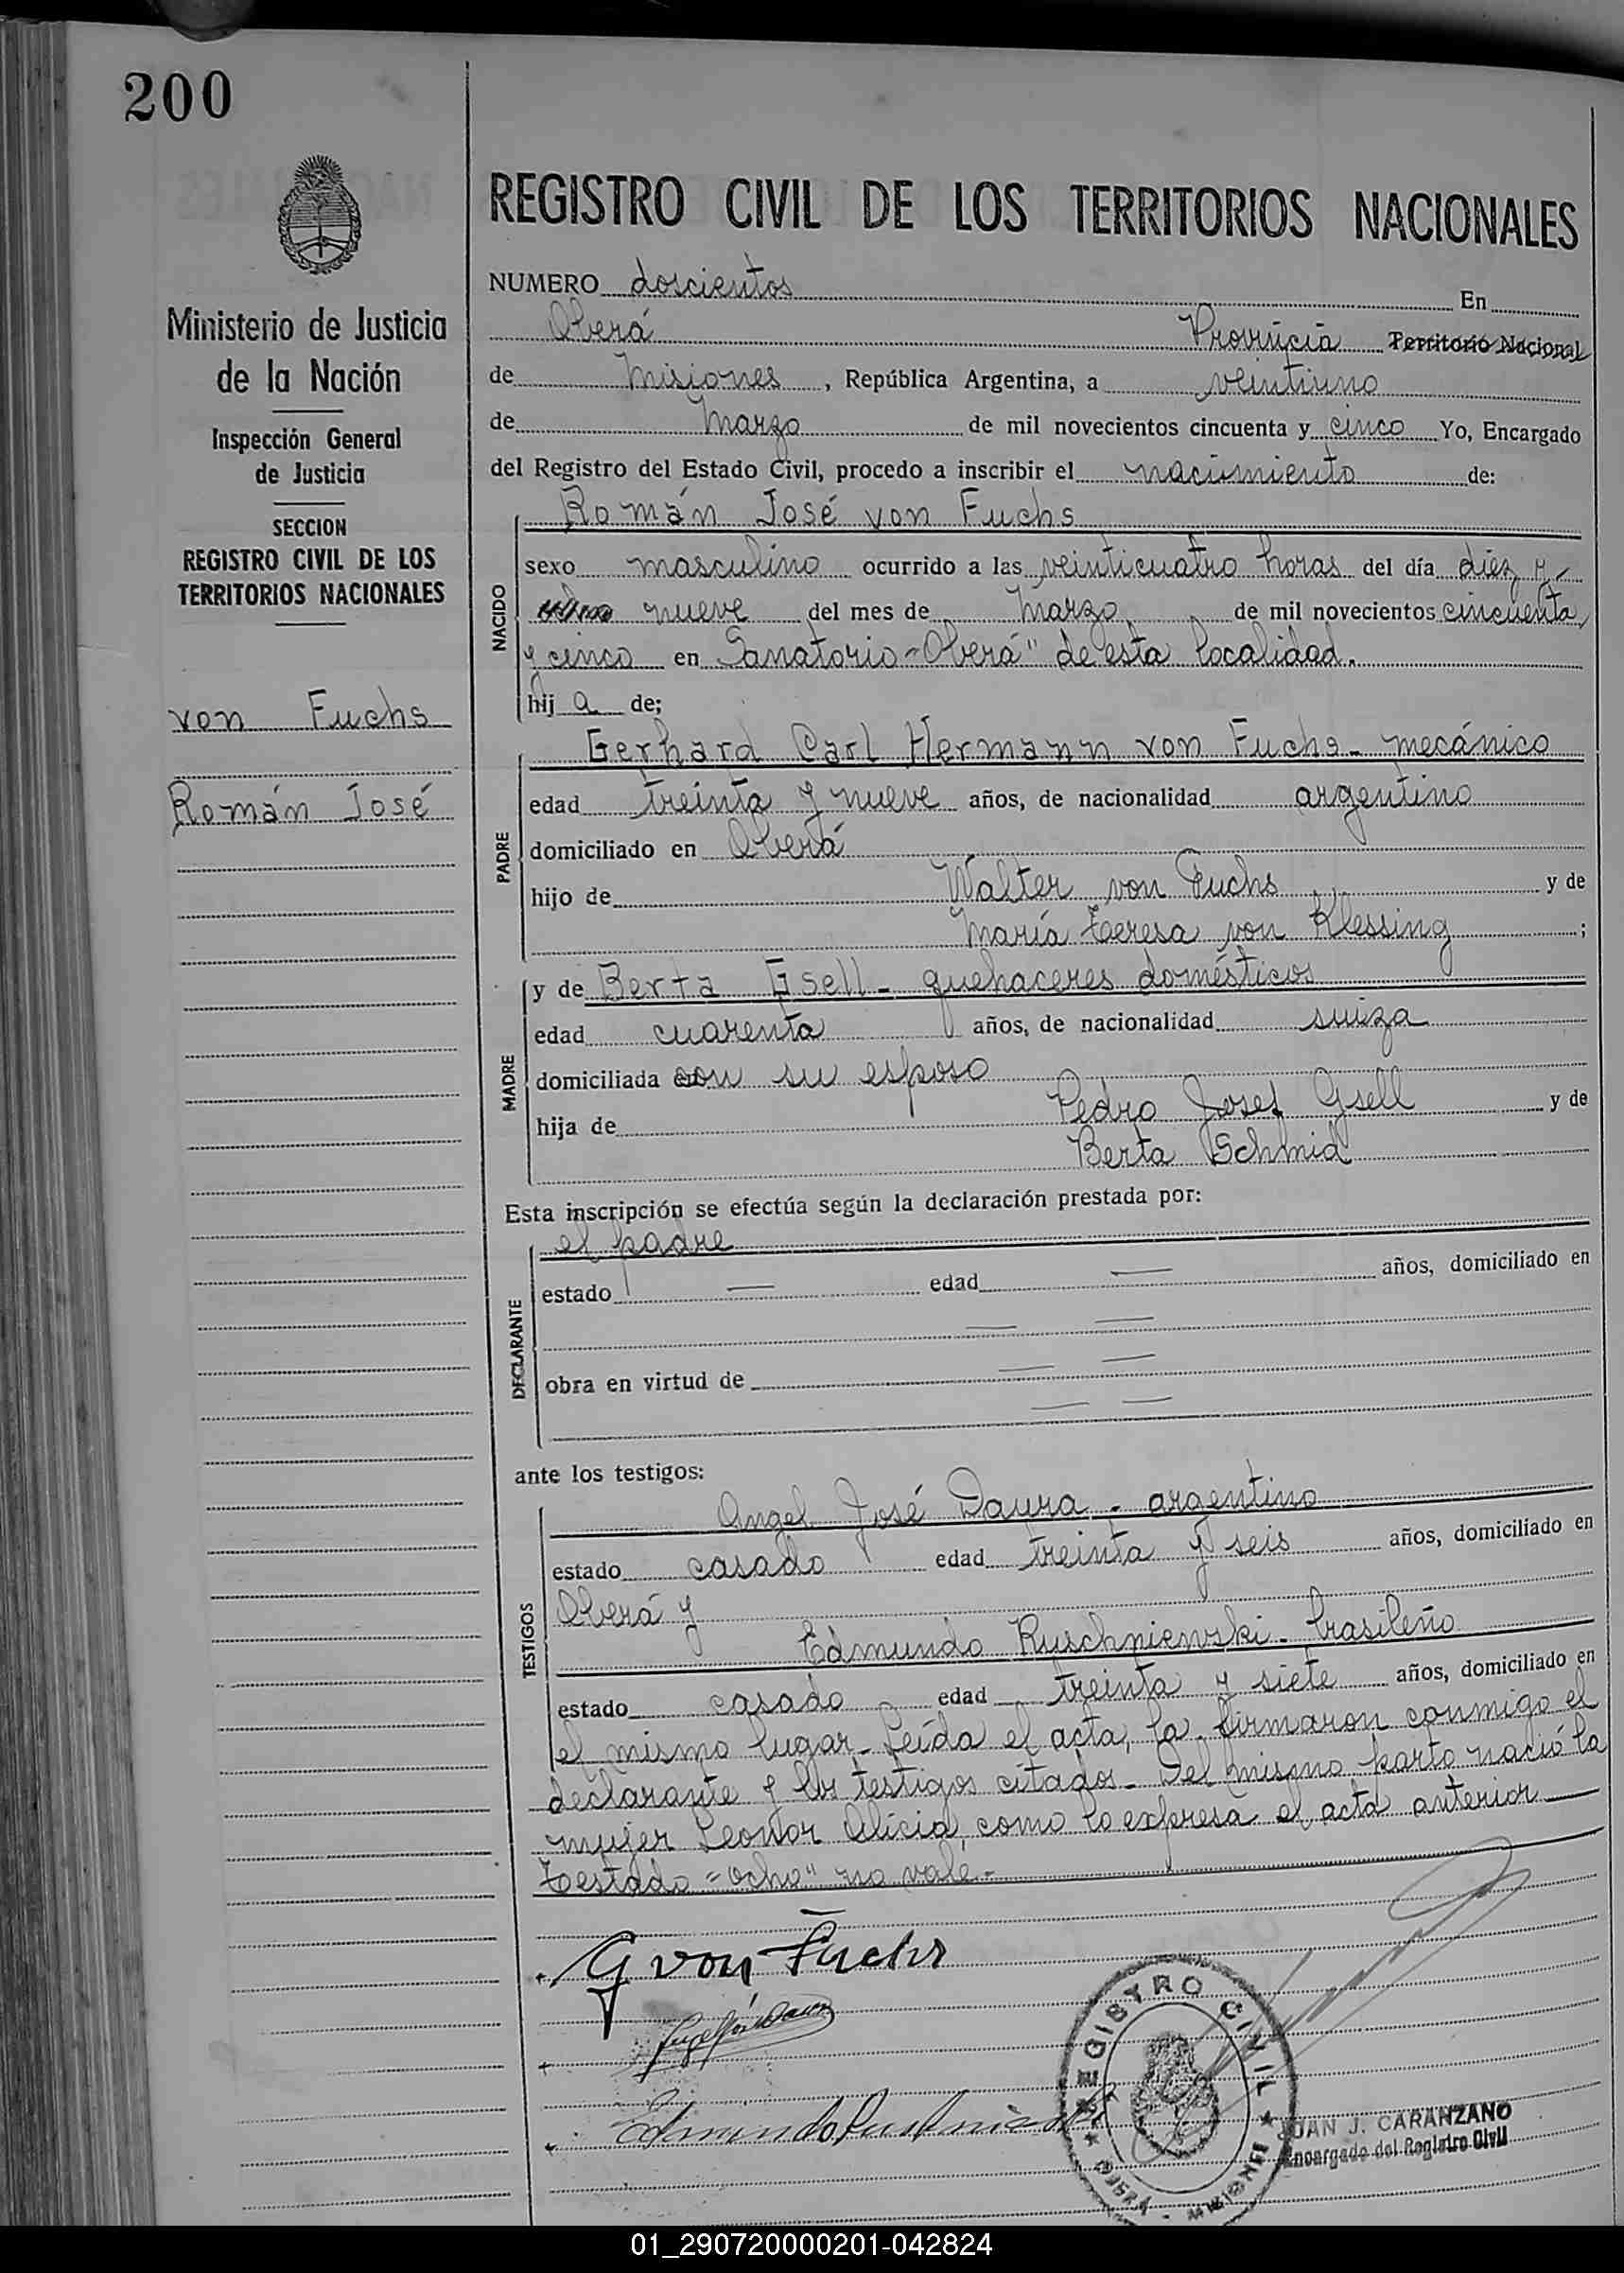 200
REGISTRO CIVIL DE LOS TERRITORIOS NACIONALES
Ministerio de Justicia
de la Nación
Inspección General
de Justicia
SECCION
REGISTRO CIVIL DE LOS
TERRITORIOS NACIONALES
von Fuchs
Román José
NUMERO doscientos En
Oberá Provincia Territorio Nacional
de Misiones, República Argentina, a veintiuno
de Marzo de mil novecientos cincuenta y cinco Yo, Encargado
del Registro del Estado Civil, procedo a inscribir el nacimiento de:
NACIDO
Román José von Fuchs
sexo masculino ocurrido a las veinticuatro horas del día diez y-
ocho nueve del mes de Marzo de mil novecientos cincuenta
y cinco en Sanatorio "Oberá" de esta localidad.
hij a de;
PADRE
Gerhard Carl Hermann von Fuchs - mecánico
edad treinta y nueve años, de nacionalidad argentino
domiciliado en Oberá
hijo de Walter von Fuchs y de
María Teresa von Klessing ;
MADRE
y de Berta Gsell - quehaceres domésticos
edad cuarenta años, de nacionalidad suiza
domiciliada con su esposo
hija de Pedro Josef Gsell y de
Berta Schmid
Esta inscripción se efectúa según la declaración prestada por:
DECLARANTE
el padre
estado — edad — años, domiciliado en
— —
obra en virtud de — —
— —
ante los testigos:
TESTIGOS
Angel José Daura - argentino
estado casado edad treinta y seis años, domiciliado en
Oberá y
Edmundo Ruschniewski - brasileño
estado casado edad treinta y siete años, domiciliado en
el mismo lugar - Leída el acta, la firmaron conmigo el
declarante y los testigos citados - Del mismo parto nació la
mujer Leonor Alicia, como lo expresa el acta anterior —
Testado "ocho" no vale.-
G von Fuchs
REGISTRO CIVIL
OBERA - MISIONES
JUAN J. CARANZANO
Encargado del Registro Civil
01_290720000201-042824